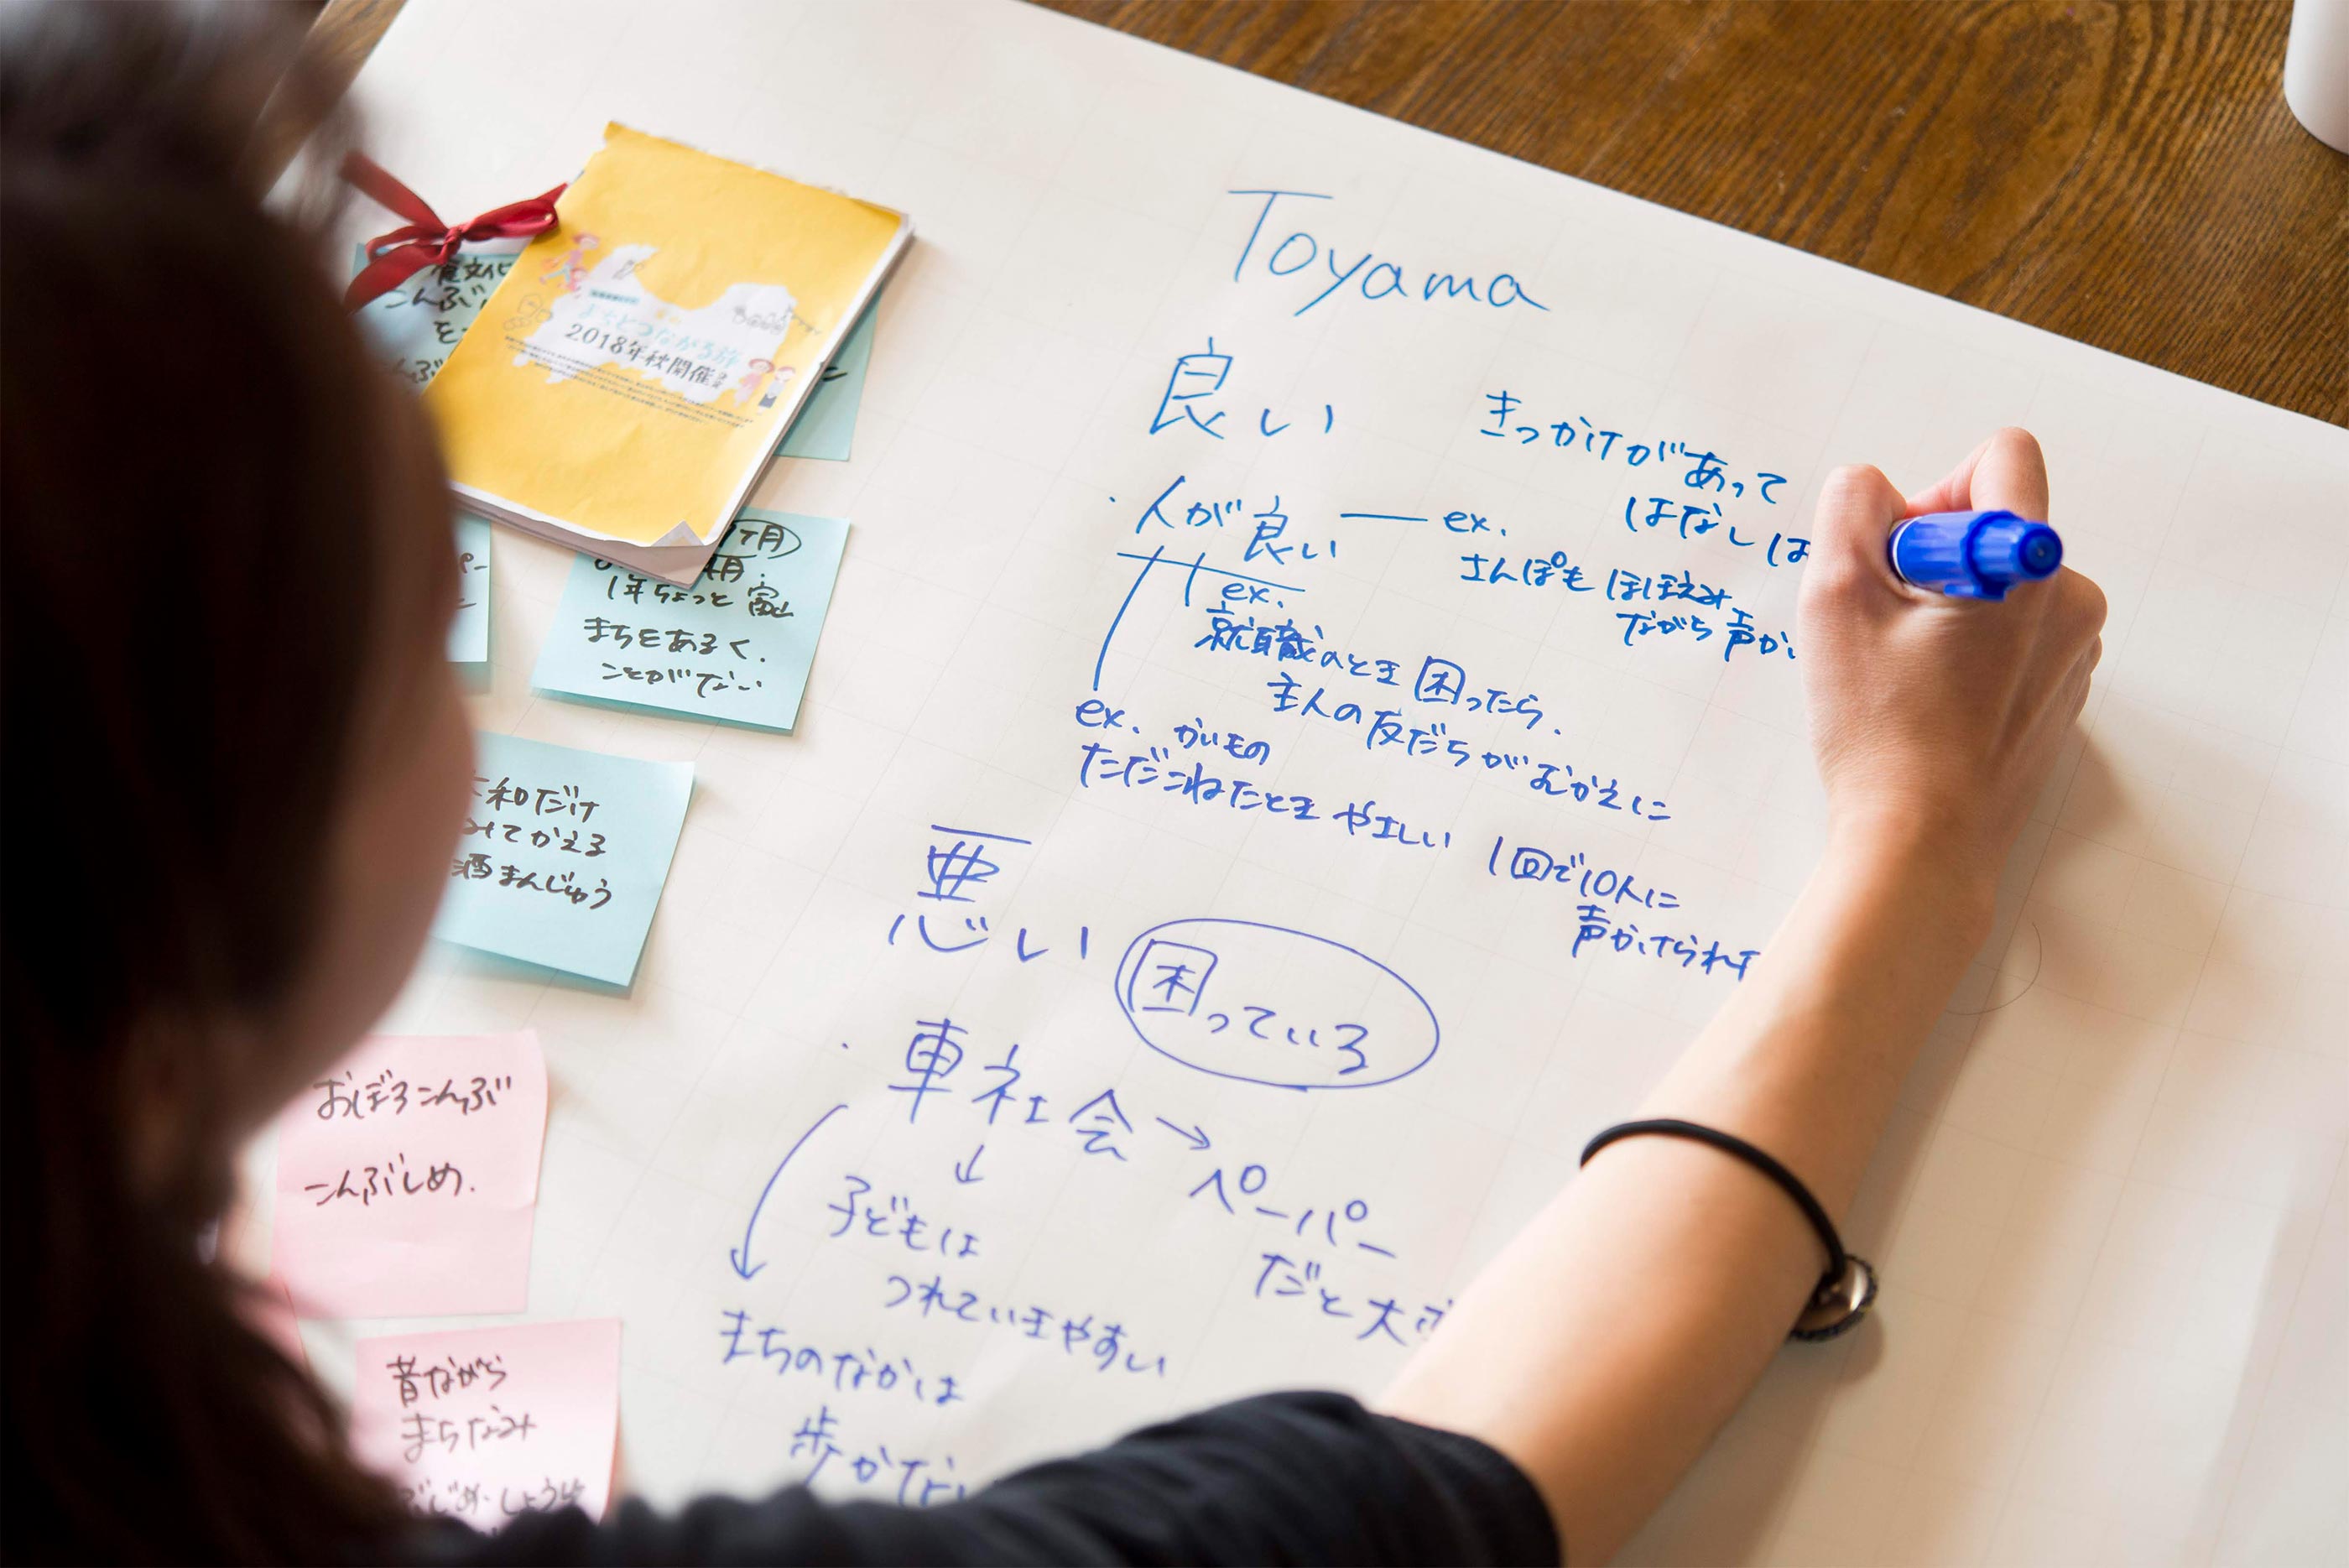 Toyama
良い
・人が良い ― ex.
きっかけがあって
はなしは
さんぽも ほほえみ
ながら声か
ex.
就職のとき 困ったら.
主人の友だちがむかえに
ex. かいもの
ただこねたとき やさしい
1回で10人に
声かけられ
悪い
困っている
・車社会→
↓
ペーパー
だと大
子どもは
つれていきやすい
まちのなかは
歩かない
まちとつながる旅
2018年秋開催
食文化
こんぶ
を
んぶ
1ヶ月
1年ちょっと 富山
まちをあるく.
ことがない
和だけ
みてかえる
酒まんじゅう
おぼろこんぶ
こんぶじめ.
昔ながら
まちなみ